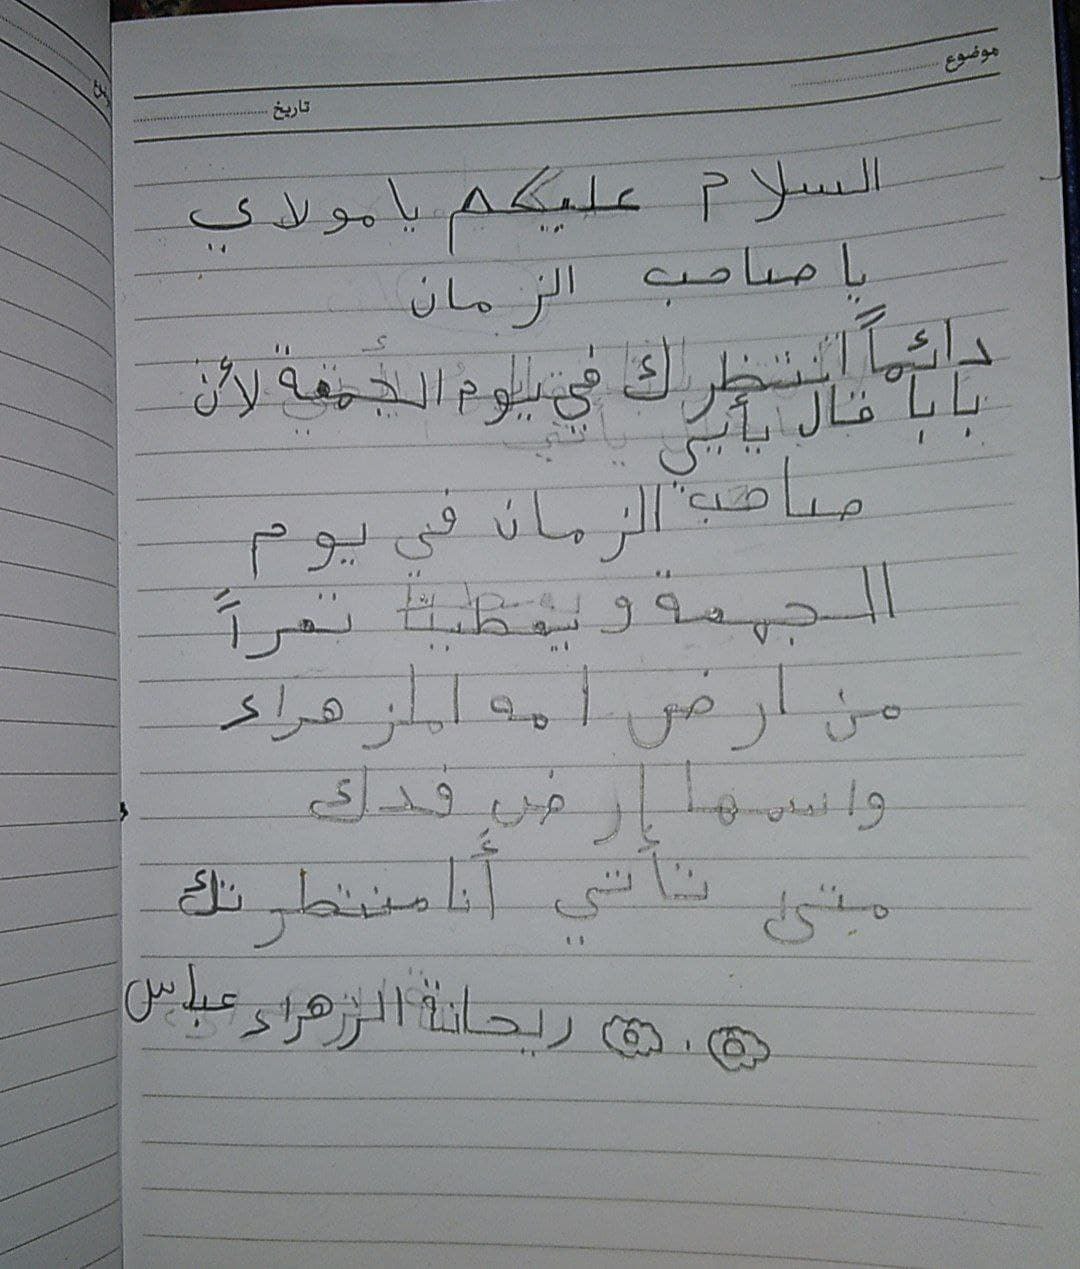 موضوع
تاريخ
السلام عليكم يا مولاي
يا صاحب الزمان
دائماً انتظرك في يوم الجمعة لأن
بابا قال يأتي
صاحب الزمان في يوم
الجمعة ويعطينا تمراً
من ارض امه الزهراء
واسمها إرض فدك
متى تأتي أنا منتظرتك
ريحانة الزهراء عباس